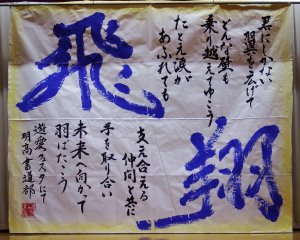 飛翔
君にしかない
翼を広げて
どんな壁も
乗り越えてゆこう
たとえ涙が
あふれても
支え合える
仲間と共に
手を取り合い
未来へ向かって
羽ばたこう
遊愛フェスタにて
明高書道部